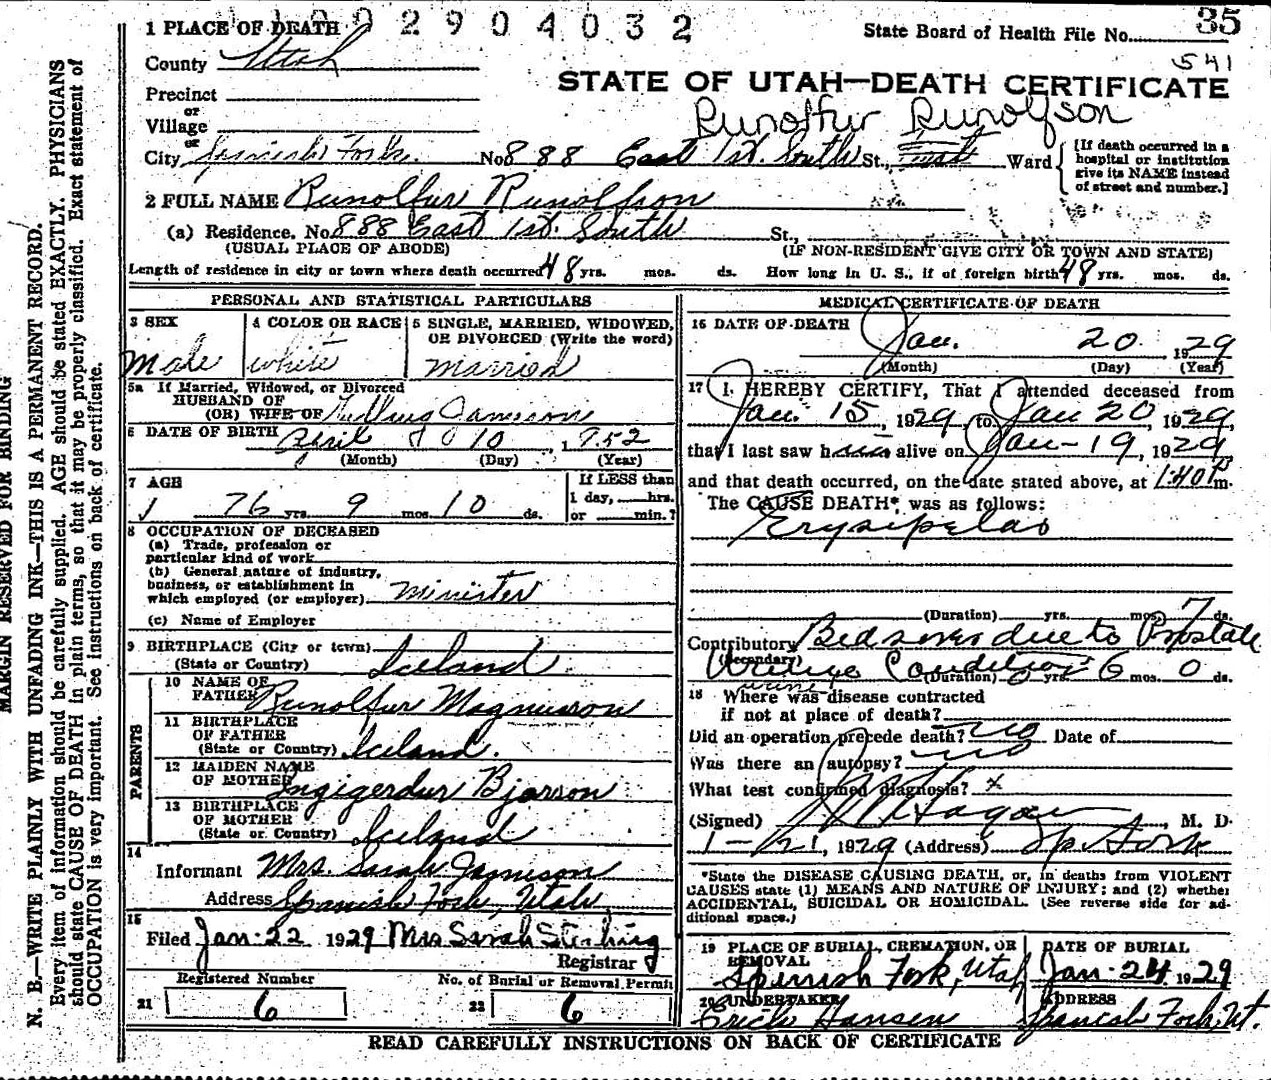 2904032
35
1 PLACE OF DEATH
State Board of Health File No.
541
County Utah
STATE OF UTAH—DEATH CERTIFICATE
Precinct
or
Village
Runolfur Runolfson
or
City Spanish Fork. No 888 East 1st. South St., Ward
[If death occurred in a hospital or institution give its NAME instead of street and number.]
2 FULL NAME Runolfur Runolfson
(a) Residence. No 888 East 1st. South St.,
(USUAL PLACE OF ABODE) (IF NON-RESIDENT GIVE CITY OR TOWN AND STATE)
Length of residence in city or town where death occurred 48 yrs. mos. ds. How long in U. S., if of foreign birth 48 yrs. mos. ds.
PERSONAL AND STATISTICAL PARTICULARS
3 SEX
Male
4 COLOR OR RACE
white
5 SINGLE, MARRIED, WIDOWED, OR DIVORCED (Write the word)
married
5a If Married, Widowed, or Divorced
HUSBAND OF
(OR) WIFE OF Jameson
6 DATE OF BIRTH April 10, 1852
(Month) (Day) (Year)
7 AGE
76 yrs. 9 mos. 10 ds.
If LESS than
1 day, hrs.
or min.?
8 OCCUPATION OF DECEASED
(a) Trade, profession or
particular kind of work
(b) General nature of industry,
business, or establishment in
which employed (or employer) minister
(c) Name of Employer
9 BIRTHPLACE (City or town)
(State or Country) Iceland
PARENTS
10 NAME OF
FATHER Runolfur Magnusson
11 BIRTHPLACE
OF FATHER
(State or Country) Iceland.
12 MAIDEN NAME
OF MOTHER Ingigerdur Bjarson
13 BIRTHPLACE
OF MOTHER
(State or Country) Iceland
14
Informant Mrs. Sarah Jameson
Address Spanish Fork, Utah
15
Filed Jan. 22 1929 Mrs Sarah Sterling
Registrar
Registered Number No. of Burial or Removal Permit
21 6 22 6
MEDICAL CERTIFICATE OF DEATH
16 DATE OF DEATH
Jan. 20, 1929
(Month) (Day) (Year)
17 I HEREBY CERTIFY, That I attended deceased from
Jan. 15, 1929, to Jan 20, 1929,
that I last saw him alive on Jan-19, 1929,
and that death occurred, on the date stated above, at 1:40 P m.
The CAUSE DEATH*, was as follows:
Erysipelas
(Duration) yrs. mos. 7 ds.
Contributory Bed sores due to Prostate
(Secondary) Urine Condition
urine
(Duration) yrs. 6 mos. 0 ds.
18 Where was disease contracted
if not at place of death?
Did an operation precede death? no Date of
Was there an autopsy? no
What test confirmed diagnosis? x
(Signed) Hagan, M. D.
1-21, 1929 (Address) Sp. Fork
*State the DISEASE CAUSING DEATH, or, in deaths from VIOLENT
CAUSES state (1) MEANS AND NATURE OF INJURY; and (2) whether
ACCIDENTAL, SUICIDAL OR HOMICIDAL. (See reverse side for ad-
ditional space.)
19 PLACE OF BURIAL, CREMATION, OR
REMOVAL
Spanish Fork, Utah
DATE OF BURIAL
Jan. 24 1929
20 UNDERTAKER
Erick Hansen
ADDRESS
Spanish Fork, Ut.
READ CAREFULLY INSTRUCTIONS ON BACK OF CERTIFICATE
MARGIN RESERVED FOR BINDING
N. B.—WRITE PLAINLY WITH UNFADING INK—THIS IS A PERMANENT RECORD.
Every item of information should be carefully supplied. AGE should be stated EXACTLY. PHYSICIANS
should state CAUSE OF DEATH in plain terms, so that it may be properly classified. Exact statement of
OCCUPATION is very important. See instructions on back of certificate.